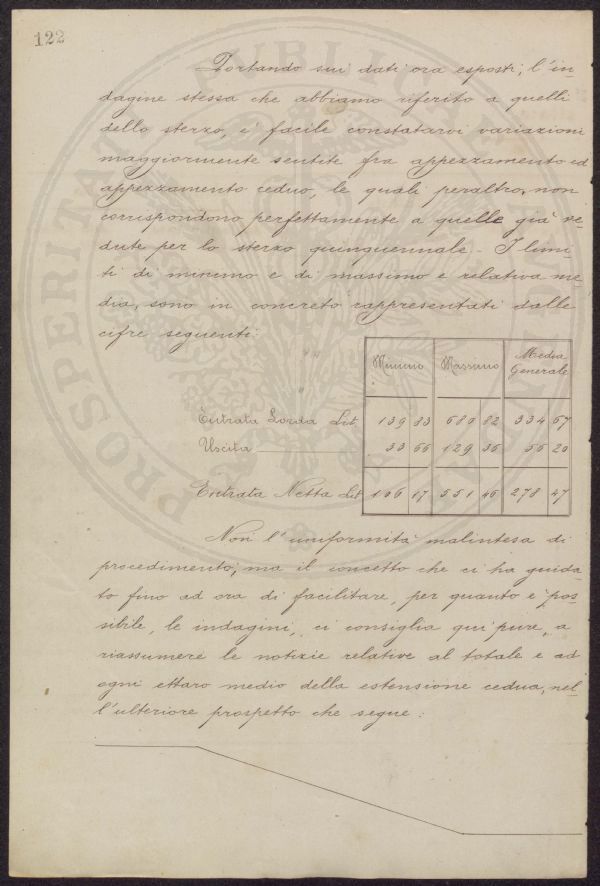 122
Portando sui dati ora esposti, l'in-
dagine stessa che abbiamo riferito a quelli
dello sterzo, e' facile constatarvi variazioni
maggiormente sentite fra appezzamento ed
appezzamento ceduo, le quali peraltro, non
corrispondono perfettamente a quelle già ve-
dute per lo sterzo quinquennale. - I limi-
ti di minimo e di massimo e relativa me-
dia, sono in concreto rappresentati dalle
cifre seguenti:
Minimo Massimo Media Generale
Entrata Lorda Lit. 139 83 680 82 334 67
Uscita 33 66 129 36 56 20
Entrata Netta Lit. 106 17 551 46 278 47
Non l'uniformità malintesa di
procedimento, ma il concetto che ci ha guida-
to fino ad ora di facilitare, per quanto e' pos-
sibile, le indagini, ci consiglia qui pure, a
riassumere le notizie relative al totale e ad
ogni ettaro medio della estensione cedua, nel-
l'ulteriore prospetto che segue:
PROSPERITAS PUBLICAE